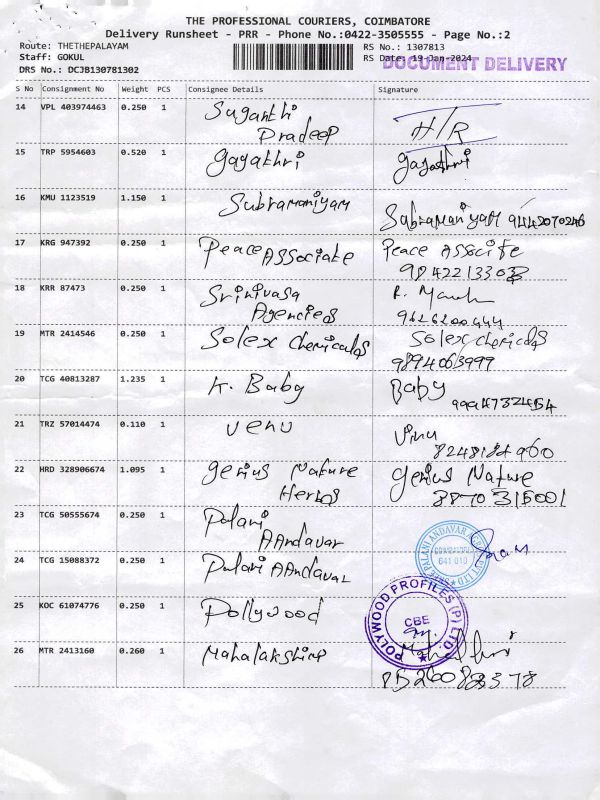 THE PROFESSIONAL COURIERS, COIMBATORE
Delivery Runsheet - PRR - Phone No.:0422-3505555 - Page No.:2
Route: THETHEPALAYAM RS No.: 1307813
Staff: GOKUL RS Date: 19-Jan-2024
DOCUMENT DELIVERY
DRS No.: DCJB130781302
S No Consignment No Weight PCS Consignee Details Signature
14 VPL 403974463 0.250 1 Suganthi H/R
Pradeep
15 TRP 5954603 0.520 1 Gayathri Gayathri
16 KMU 1123519 1.150 1 Subramaniyam Subramaniyam 9442070246
17 KRG 947392 0.250 1 Peace Associate Peace
18 KRR 87473 0.250 1 Srinivasa
Agencies
19 MTR 2414546 0.250 1 Solex Chemicals Solex chemicals
9894063999
20 TCG 40813287 1.235 1 K. Baby Baby
21 TRZ 57014474 0.110 1 Venu
22 HRD 328906674 1.095 1 Genius Nature Genius Nature
Herbs
23 TCG 50555674 0.250 1 Palani
AAndavar
24 TCG 15088372 0.250 1 Palani AAndavar
COIMBATORE
641 010
25 KOC 61074776 0.250 1 Pollywood
POLYWOOD PROFILES (P) LTD
CBE
26 MTR 2413160 0.260 1 Mahalakshmi